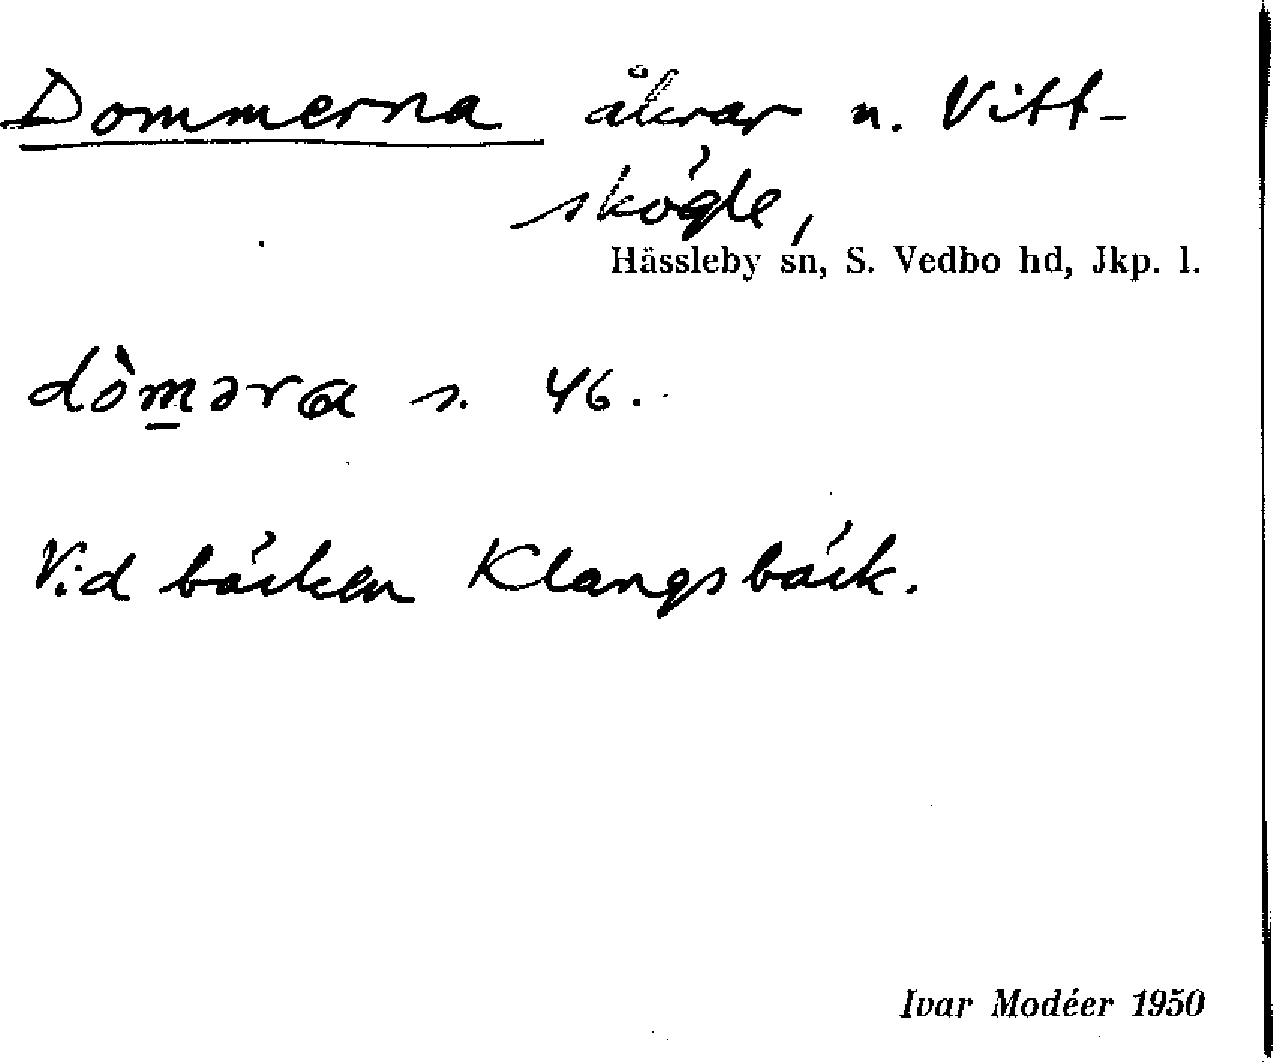 Dommerna åkrar n. Vitt-
skögle,
Hässleby sn, S. Vedbo hd, Jkp. l.
dòm̲əra s. 46.
Vid bäcken Klangsbäck.
Ivar Modéer 1950